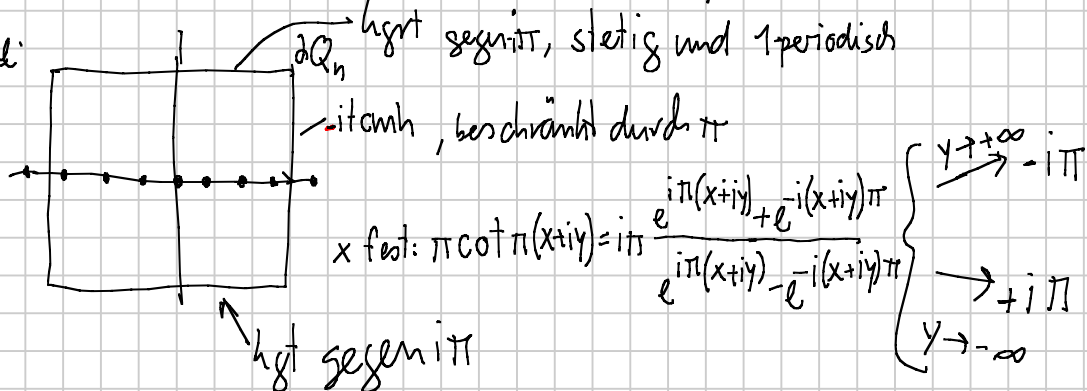 hgrt gegen iπ, stetig und 1-periodisch
∂Qₙ
-i tanh, beschränkt durch π
x fest: π cot π(x+iy) = iπ (e^{iπ(x+iy)} + e^{-i(x+iy)π}) / (e^{iπ(x+iy)} - e^{-i(x+iy)π}) { y→+∞ → -iπ
→ +iπ
y→-∞
hgt gegen iπ